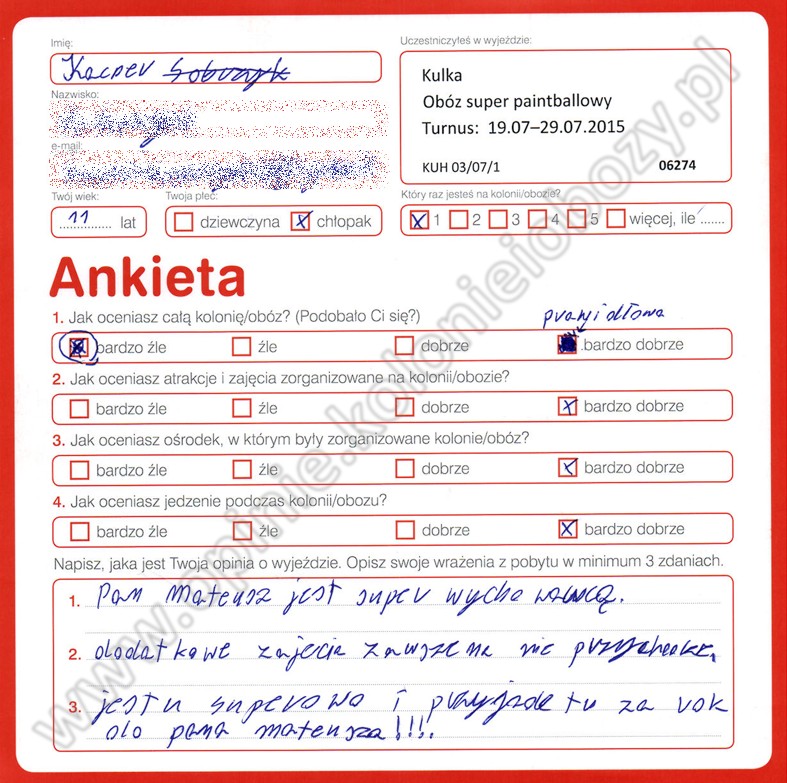 Imię:
Kacper Sobczyk
Nazwisko:
e-mail:
Twój wiek:
11 lat
Twoja płeć:
dziewczyna X chłopak
Uczestniczyłeś w wyjeździe:
Kulka
Obóz super paintballowy
Turnus: 19.07–29.07.2015
KUH 03/07/1 06274
Który raz jesteś na kolonii/obozie?
X 1 2 3 4 5 więcej, ile .......
Ankieta
1. Jak oceniasz całą kolonię/obóz? (Podobało Ci się?)
bardzo źle źle dobrze bardzo dobrze
2. Jak oceniasz atrakcje i zajęcia zorganizowane na kolonii/obozie?
bardzo źle źle dobrze X bardzo dobrze
3. Jak oceniasz ośrodek, w którym były zorganizowane kolonie/obóz?
bardzo źle źle dobrze X bardzo dobrze
4. Jak oceniasz jedzenie podczas kolonii/obozu?
bardzo źle źle dobrze X bardzo dobrze
Napisz, jaka jest Twoja opinia o wyjeździe. Opisz swoje wrażenia z pobytu w minimum 3 zdaniach.
1. Pan mateusz jest super wychowawcą.
2. dodatkowe zajęcia zawsze na nie
3. jest tu superowo i przyjade tu za rok
do pana mateusza!!!.
www.opinie.kolonieiobozy.pl